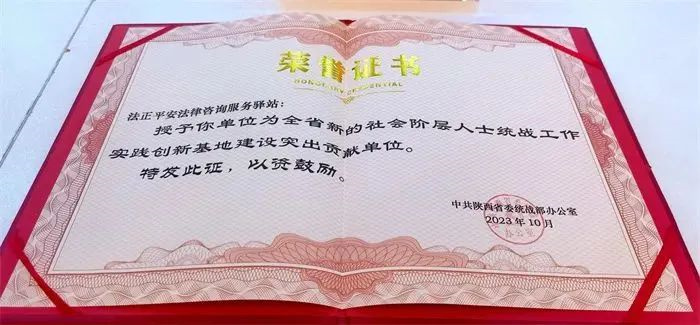 荣誉证书
HONORARY CREDENTIAL
法正平安法律咨询服务驿站：
授予你单位为全省新的社会阶层人士统战工作
实践创新基地建设突出贡献单位。
特发此证，以资鼓励。
中共陕西省委统战部办公室
2023年10月
办公室